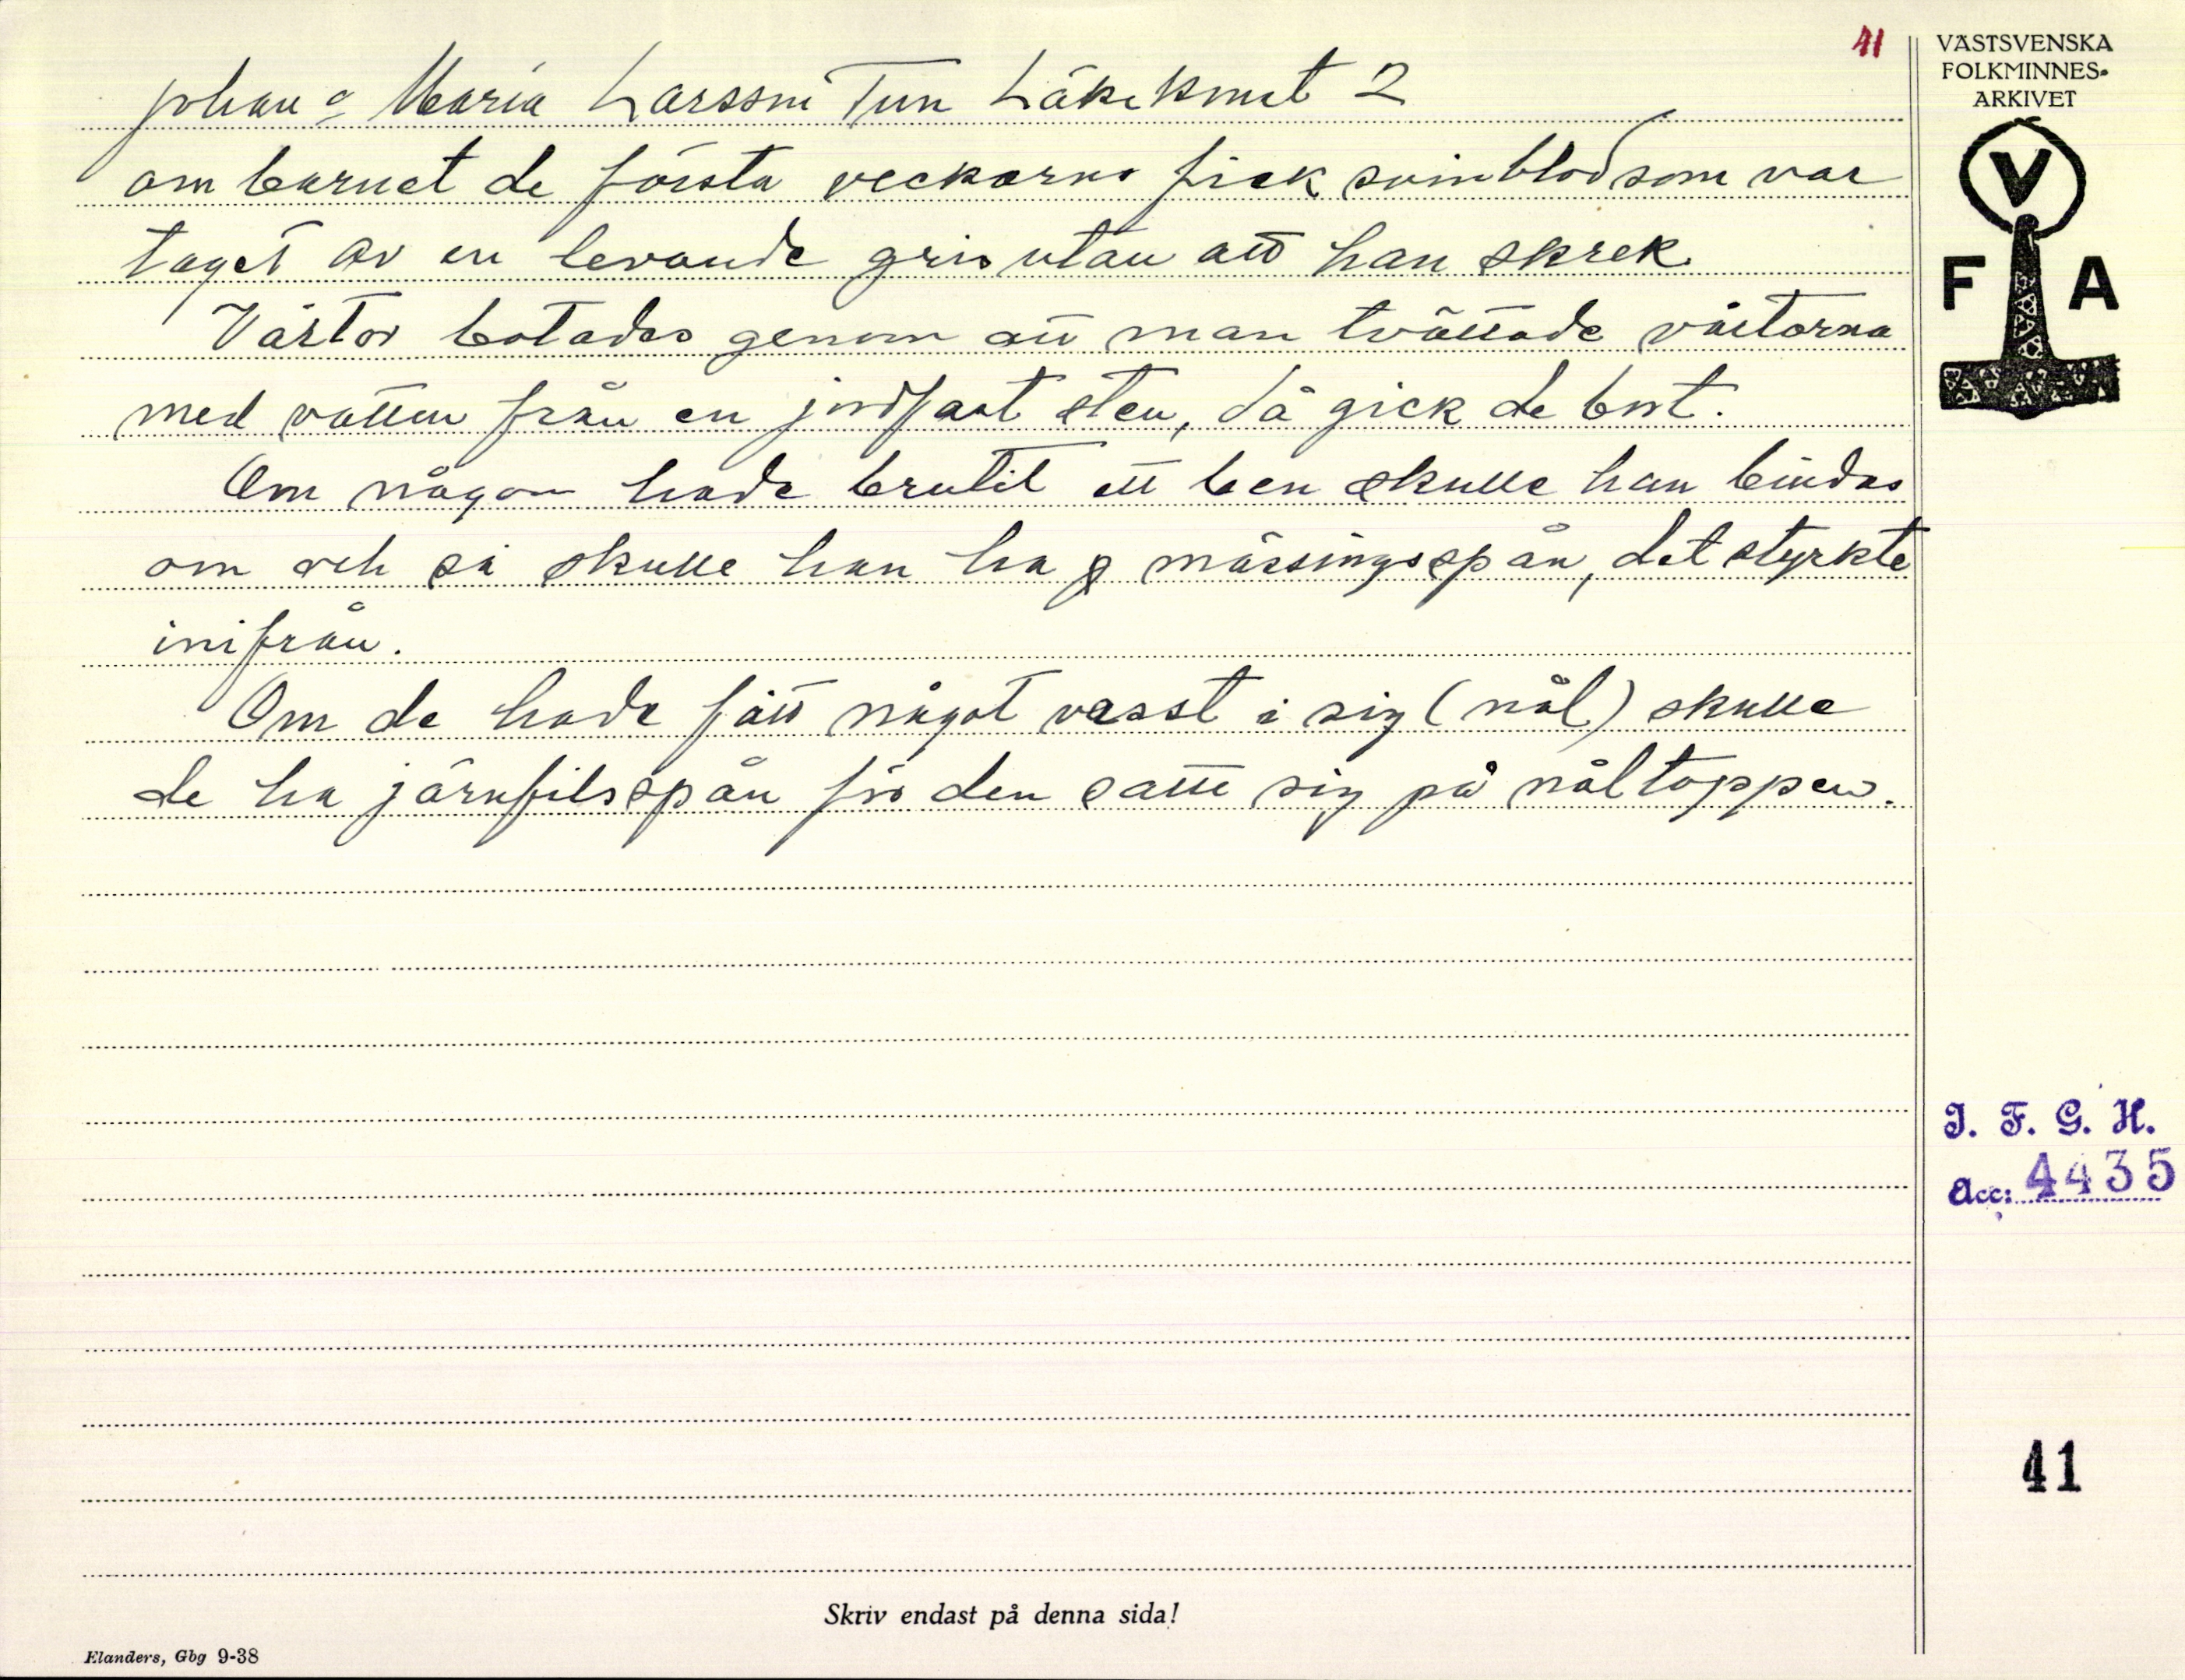 41
VÄSTSVENSKA
FOLKMINNES-
ARKIVET
V
F A
Johan o Maria Larsson Tun Läkekonst 2
om barnet de första veckorna fick svinblod som var
taget av en levande gris utan att han skrek.
Vårtor botades genom att man tvättade vårtorna
med vatten från en jordfast sten, då gick de bort.
Om någon hade brutit ett ben skulle han bindas
om och så skulle han ha mässingsspån, det styrkte
inifrån.
Om de hade fått något vasst i sig (nål) skulle
de ha järnfilsspån för den satte sig på nåltoppen.
I. F. G. H.
Acc: 4435
41
Skriv endast på denna sida!
Elanders, Gbg 9-38